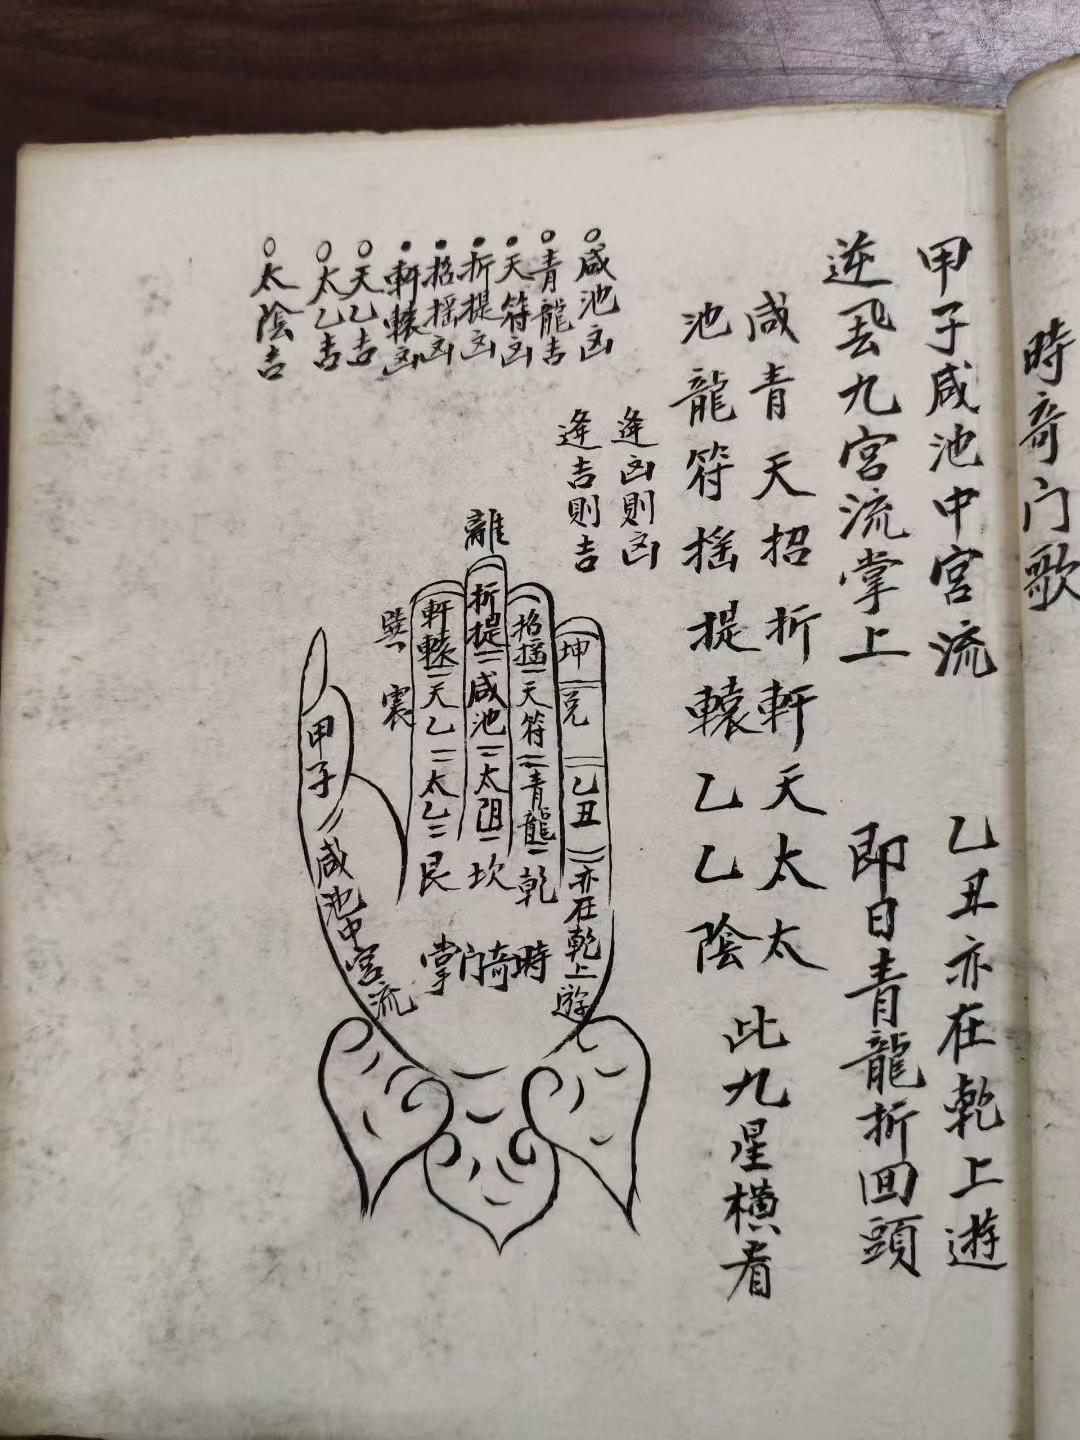 時奇门歌
甲子咸池中宮流
乙丑亦在乾上遊
逆飛九宮流掌上
即日青龍折回頭
咸青天招折軒天太太
池龍符摇提轅乙乙陰
此九星横看
逢凶則凶
逢吉則吉
咸池凶
青龍吉
天符凶
折提凶
招摇凶
軒轅凶
天乙吉
太乙吉
太陰吉
離
巽
震
坤
兑
乙丑
亦在乾上遊
招摇
天符
青龍
乾
折提
咸池
太阴
坎
軒轅
天乙
太乙
艮
甲子
咸池中宮流
時奇门掌